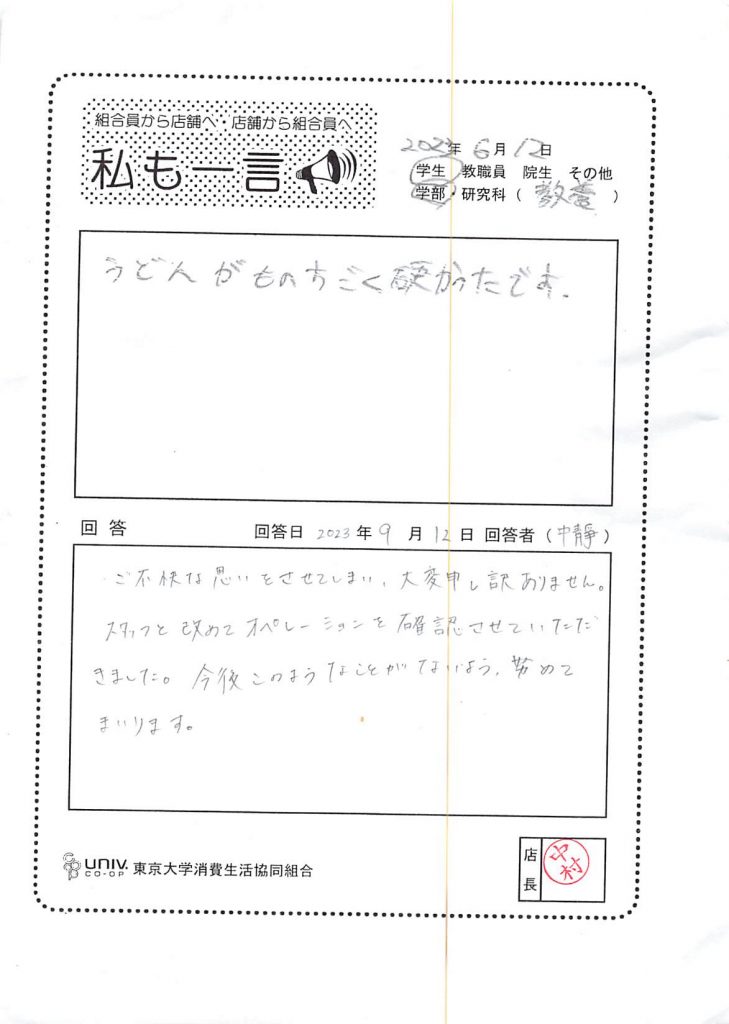 組合員から店舗へ 店舗から組合員へ
私も一言
2023年 6月 12日
学生 教職員 院生 その他
学部 研究科 ( 教養 )
うどんがものすごく硬かったです.
回答 回答日 2023 年 9 月 12 日 回答者 (中靜)
ご不快な思いをさせてしまい、大変申し訳ありません。
スタッフと改めてオペレーションを確認させていただ
きました。今後このようなことがないよう、努めて
まいります。
UNIV. CO-OP 東京大学消費生活協同組合
店長 中村